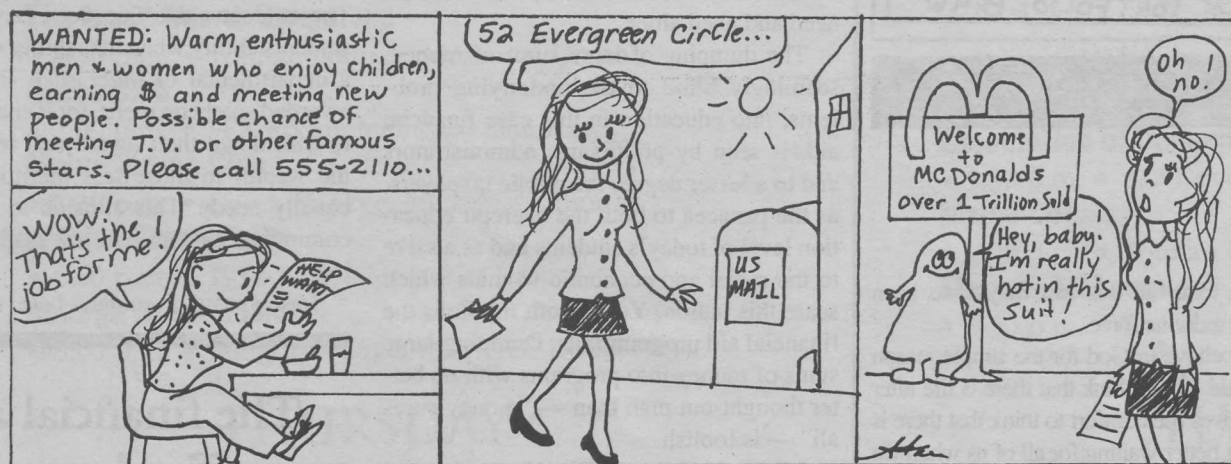 WANTED: Warm, enthusiastic
men & women who enjoy children,
earning $ and meeting new
people. Possible chance of
meeting T.V. or other famous
Stars. Please call 555-2110...
WOW!
That's the
job for me!
HELP
WANT
52 Evergreen Circle...
US
MAIL
Welcome
to
MCDonalds
over 1 Trillion Sold
Hey, baby.
I'm really
hot in this
suit!
Oh
no!